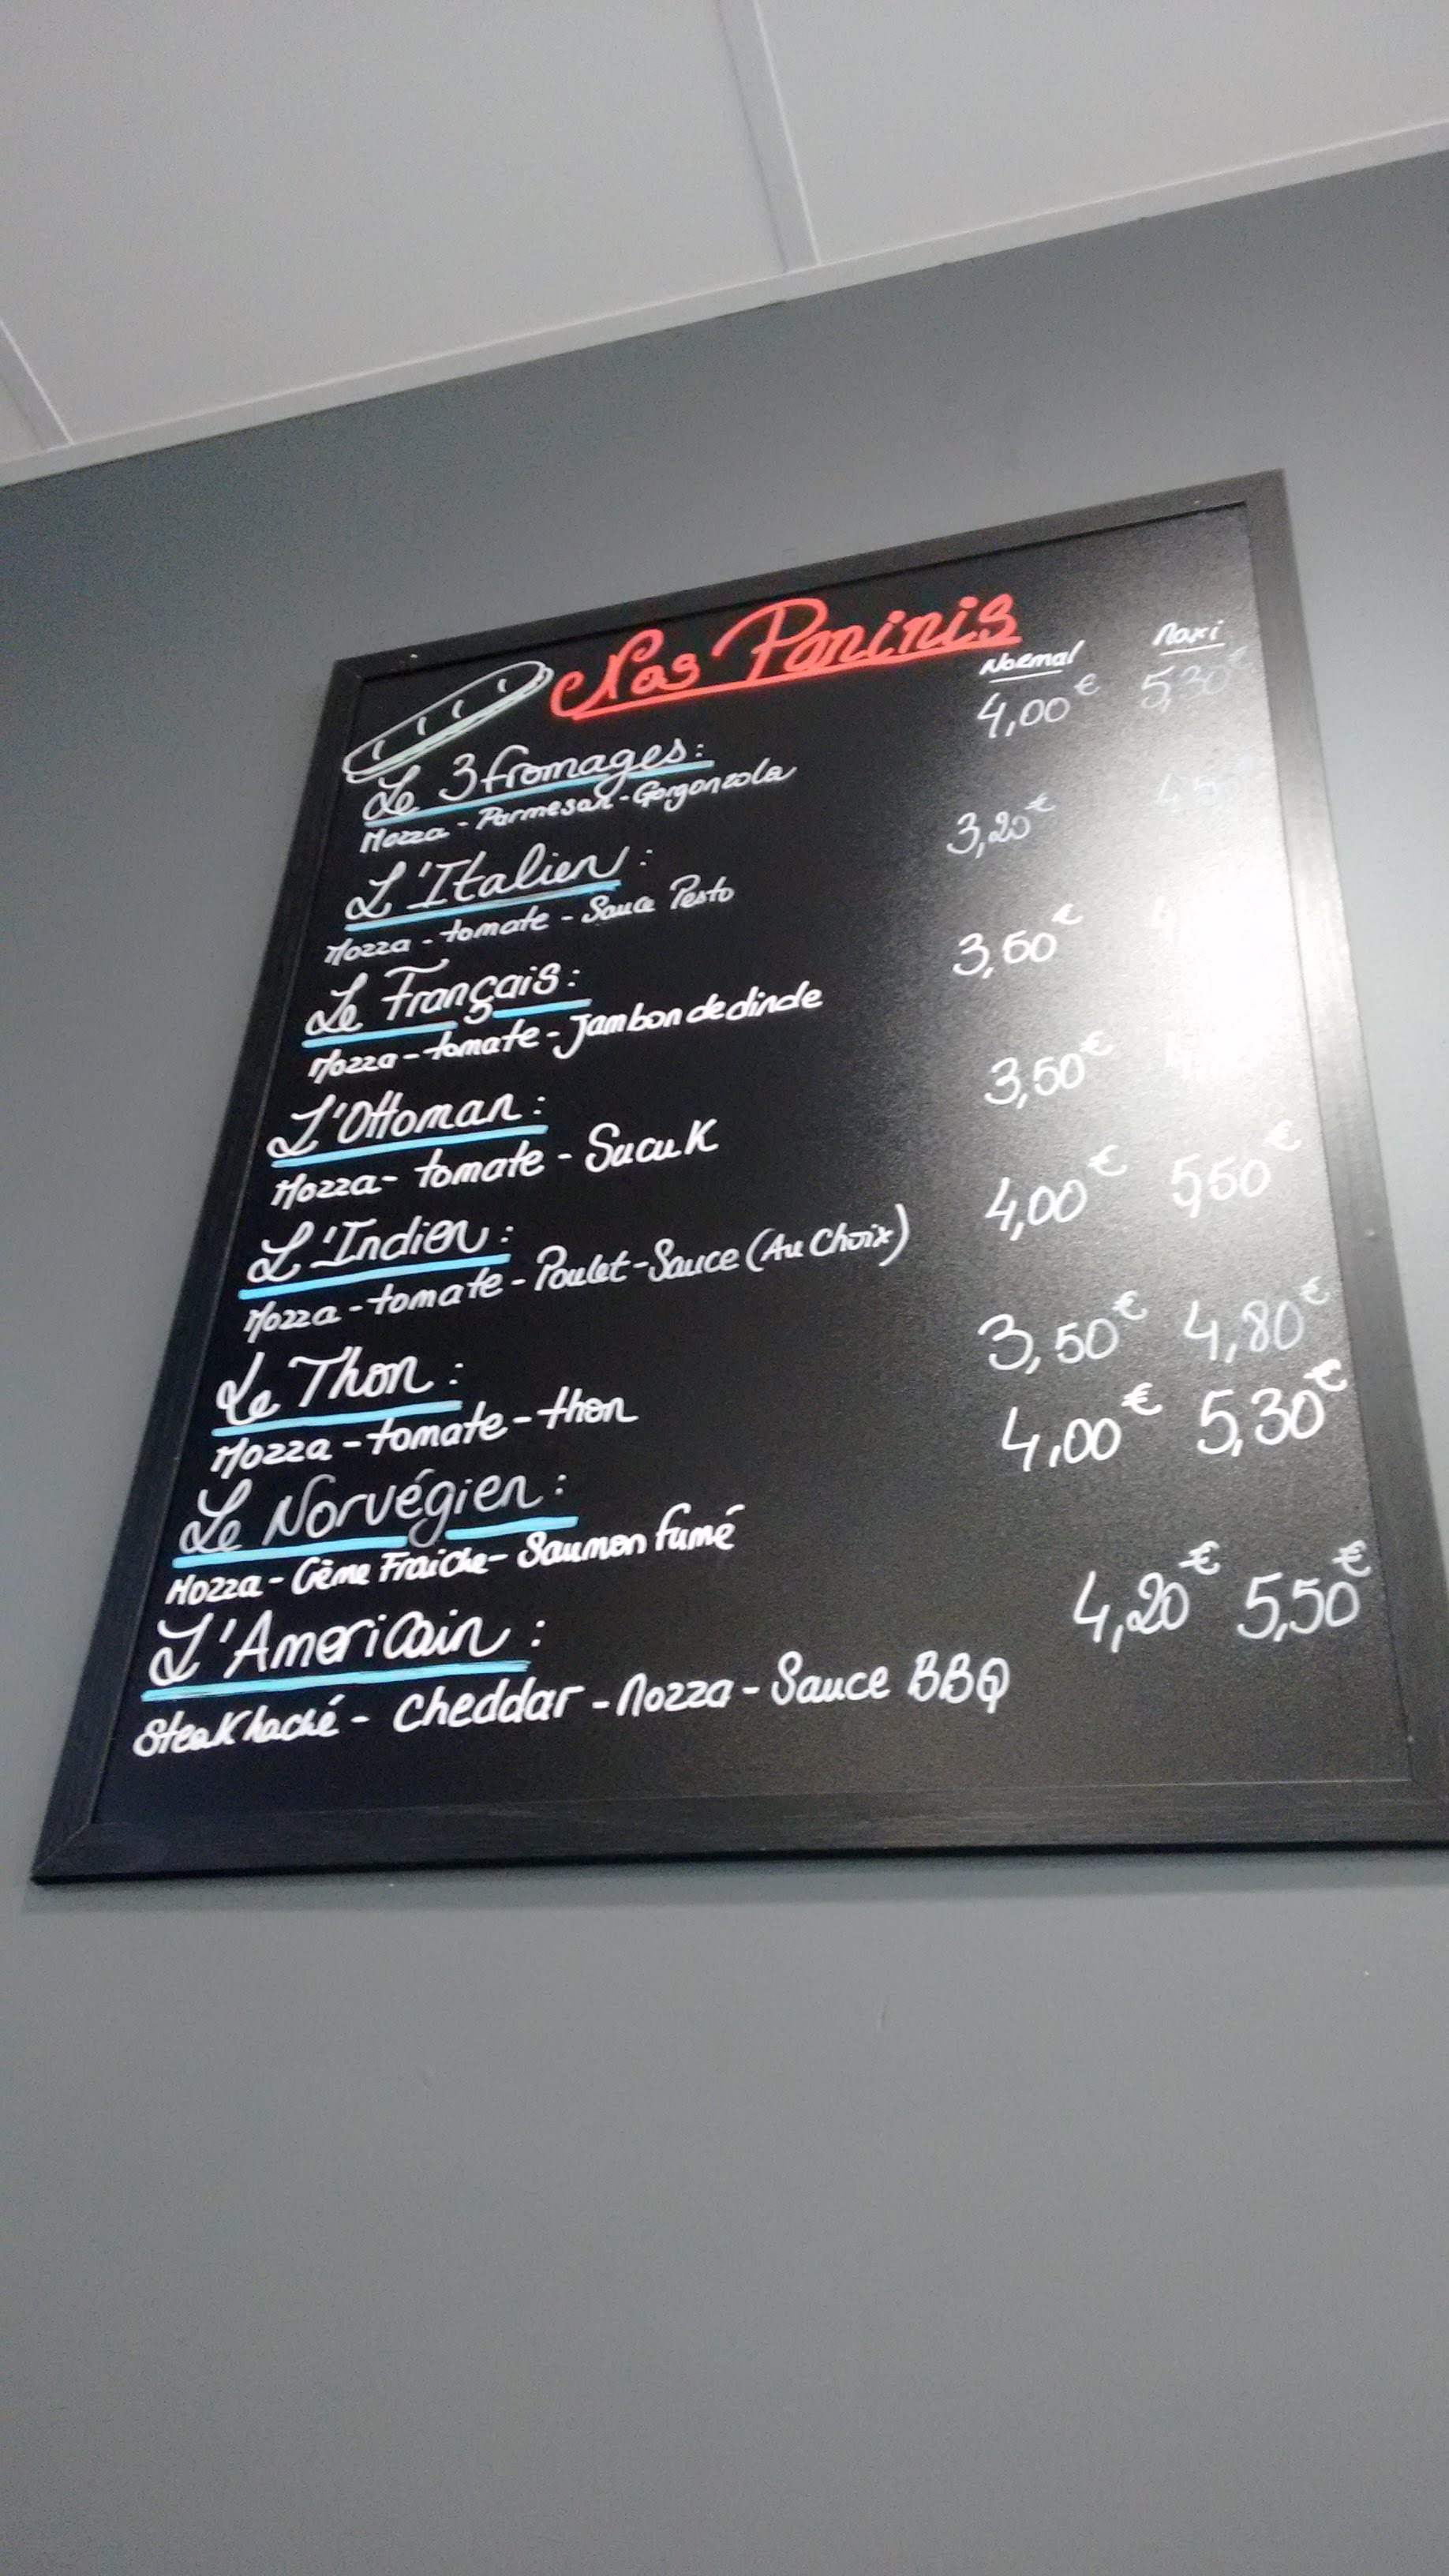 Nos Paninis
Normal Maxi
Le 3 fromages: 4,00€ 5,30€
Mozza - Parmesan - Gorgonzola
L'Italien: 3,20€
Mozza - tomate - Sauce Pesto
Le Français: 3,50€
Mozza - tomate - Jambon de dinde
L'Ottoman: 3,50€
Mozza - tomate - Sucuk
L'Indien: 4,00€ 5,50€
Mozza - tomate - Poulet - Sauce (Au Choix)
Le Thon: 3,50€ 4,80€
Mozza - tomate - thon
Le Norvégien: 4,00€ 5,30€
Mozza - Crème Fraiche - Saumon fumé
L'Americain: 4,20€ 5,50€
Steak haché - Cheddar - Mozza - Sauce BBQ